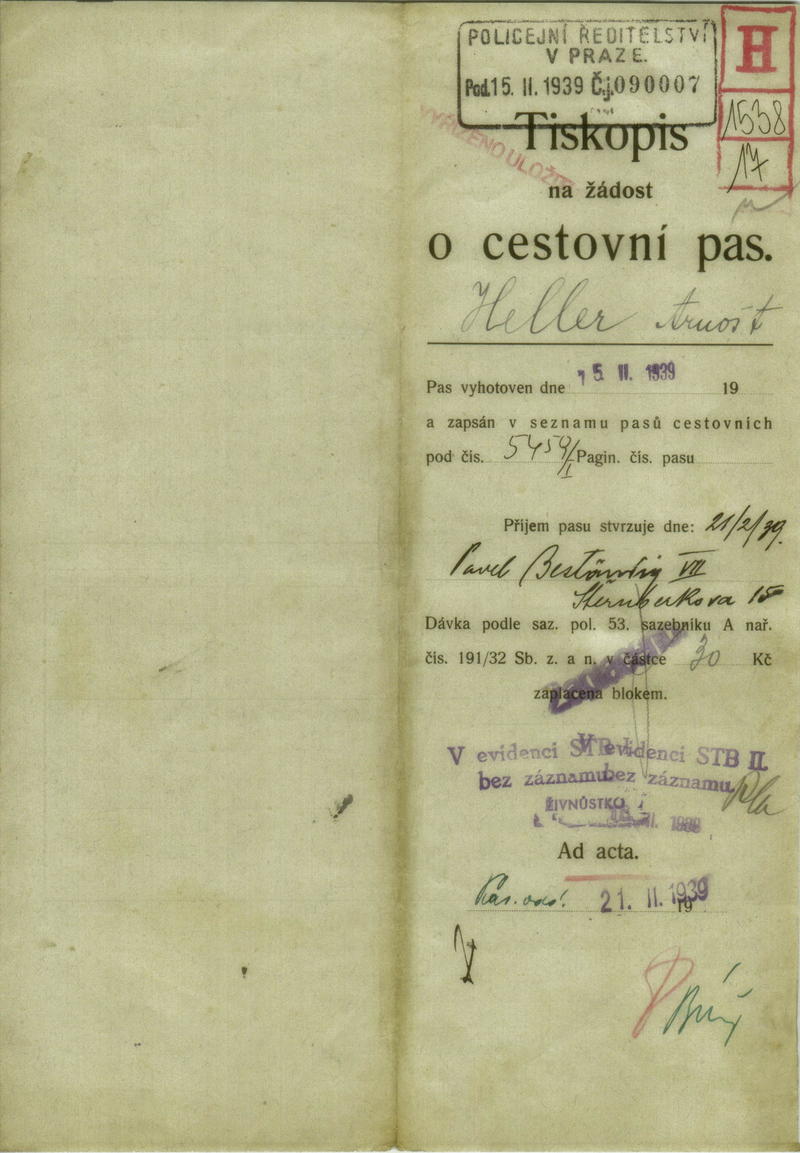 POLICEJNÍ ŘEDITELSTVÍ
V PRAZE.
Pod. 15. II. 1939 Č.j. 090007
H
1538
17
VYŘAZENO ULOŽIT
Tiskopis
na žádost
o cestovní pas.
Heller Arnošt
Pas vyhotoven dne 15. II. 1939 19
a zapsán v seznamu pasů cestovních
pod čís. 5459/I Pagin. čís. pasu
Příjem pasu stvrzuje dne: 21/2/39.
Pavel VII
Šternberkova 15
Dávka podle saz. pol. 53. sazebníku A nař.
čís. 191/32 Sb. z. a n. v částce 30 Kč
zaplacena blokem.
V evidenci STB I. V evidenci STB II.
bez záznamu bez záznamu
ŽIVNŮSTKO
Ad acta.
21. II. 1939 19